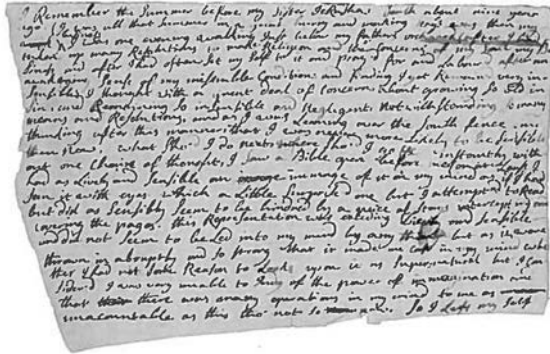 I Remember the Summer before my Sister Jerusha's Death about nine years
ago I being all that Summer in a great hurry and working days away
I was one evening walking Just below my fathers orchard after I had
many Repetitions to make Religion and the concerns of my Soul my
and after I had often Set my Self to it and pray'd for and Labour'd after an
awakening Sense of my miserable Condition and finding I yet Remain'd very in=
Sensible I thought with a great deal of concern about growing So old in
Sin, and Remaining So insensible and Negligent, Notwithstanding So many
means and Resolutions, and as I was Leaning over the South fence
thinking after this manner that I was never more Likely to be Sensible
than now, what Shod I do next where Shod I go etc instantly with=
out one Chain of thought, I Saw a Bible open Before me
had as Lively and Sensible an image of it in my mind as if I had
Seen it with eyes which a Little Surpris'd me but I attempt'd to Read
but did as Sensibly Seem to be hindred by a of Stars intercepting and
covering the pages. this Representation was exceeding Lively and Sensible
and did not Seem to be Led into my mind by any but as it were
thrown in abruptly and So Strong that it made me in my mind whe=
ther I had not Some Reason to Look upon it as Supernatural but I Con=
Sider'd I was very unable to of the power of imagination and
that there was many operations in my mind to me as
unaccountable as this tho' not So So I Left my Self